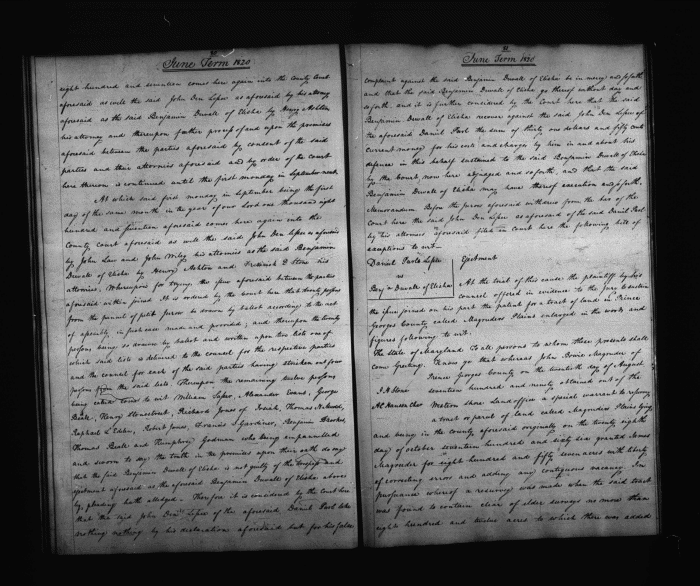 June Term 1820
eight hundred and seventeen comes here again into the County Court
aforesaid as well the said John Den Lessee as aforesaid by his attorney
aforesaid as the said Benjamin Duvall of Elisha by Henry Ashton
his attorney and thereupon futher process of and upon the premises
aforesaid between the parties aforesaid by consent of the said
parties and their attornies aforesaid and by order of the court
here thereon is continued until the first monday in September next.
At which said first monday in September being the first
day of the same month in the year of our Lord one thousand eight
hundred and aforesaid comes here again into the
County Court aforesaid as well the said John Den Lessee as aforesaid
by John Law and John Wiley his attornies as the said Benjamin
Duvall of Elisha by Henry Ashton and Frederick Stone his
attornies, Whereupon for trying the issue aforesaid between the parties
aforesaid within joined It is ordered by the court here that twenty persons
from the pannel of petit jurors be drawn by ballot according to the act
of assembly in such case made and provided; and thereupon the twenty
persons being so drawn by ballot and written upon two lists one of
which said lists is delivered to the counsel for the respective parties
and the counsel for each of the said parties having stricken out four
persons from the said lists. Thereupon the remaining twelve persons
being called come to wit William Soper, Alexander Evans, George
Beall, Henry Stonestreet, Richard Jones of Josiah, Thomas
Raphael C Edelen, Robert Jones, Francis S Gardiner, Benjamin
Thomas Beall and Humphrey Godman who being empannelled
and sworn to say the truth in the premises upon their oath do say
that the said Benjamin Duvall of Elisha is not guilty of the trespass and
ejectment aforesaid as the aforesaid Benjamin Duvall of Elisha above
by pleading hath alledged. Therefore it is considered by the Court here
that the said John Den Lessee of the aforesaid Daniel Parl take
nothing by his declaration aforesaid but for his false
June Term 1820
complaint against the said Benjamin Duvall of Elisha be in mercy and so forth
and that the said Benjamin Duvall of Elisha go thereof without day and
so forth and it is further considered by the Court here that the said
Benjamin Duvall of Elisha recover against the said John Den Lessee of
the aforesaid Daniel Parl the sum of thirty one dollars and fifty cents
current money for his costs and charges by him in and about his
defence in this behalf sustained to the said Benjamin Duvall of Elisha
by the court now here adjudged and so forth, and that the said
Benjamin Duvall of Elisha may have thereof execution and so forth,
Memorandum. Before the jurors aforesaid withdrew from the bar of the
court here the said John Den Lessee as aforesaid of the said Daniel Parl
by his attornies aforesaid filed in court here the following bill of
exceptions to wit—
Daniel Parls Lessee
vs
Benj n Duvall of Elisha
Ejectment
At the trial of this cause the plaintiff by his
counsel offered in evidence to the Jury to sustain
the issue joined on his part the patent for a tract of land in Prince
Georges County called Magruders Plains enlarged in the words and
figures following to wit.
The State of Maryland To all persons to whom these presents shall
come Greeting. Know ye that whereas John Bowie Magruder of
Prince Georges County on the twentieth day of August
J H Stone
seventeen hundred and ninety obtained out of the
Western shore Land office a special warrant to resurvey
a tract or part of land called Magruders Plains lying
and being in the county aforesaid originally on the twenty eighth
day of October seventeen hundred and sixty six granted
Magruder for eight hundred and fifty seven acres with liberty
of correcting errors and adding any contiguous vacancy In
pursuance whereof a resurvey was made when the said tract
was found to contain clear of elder surveys no more than
eight hundred and twelve acres to which there was added